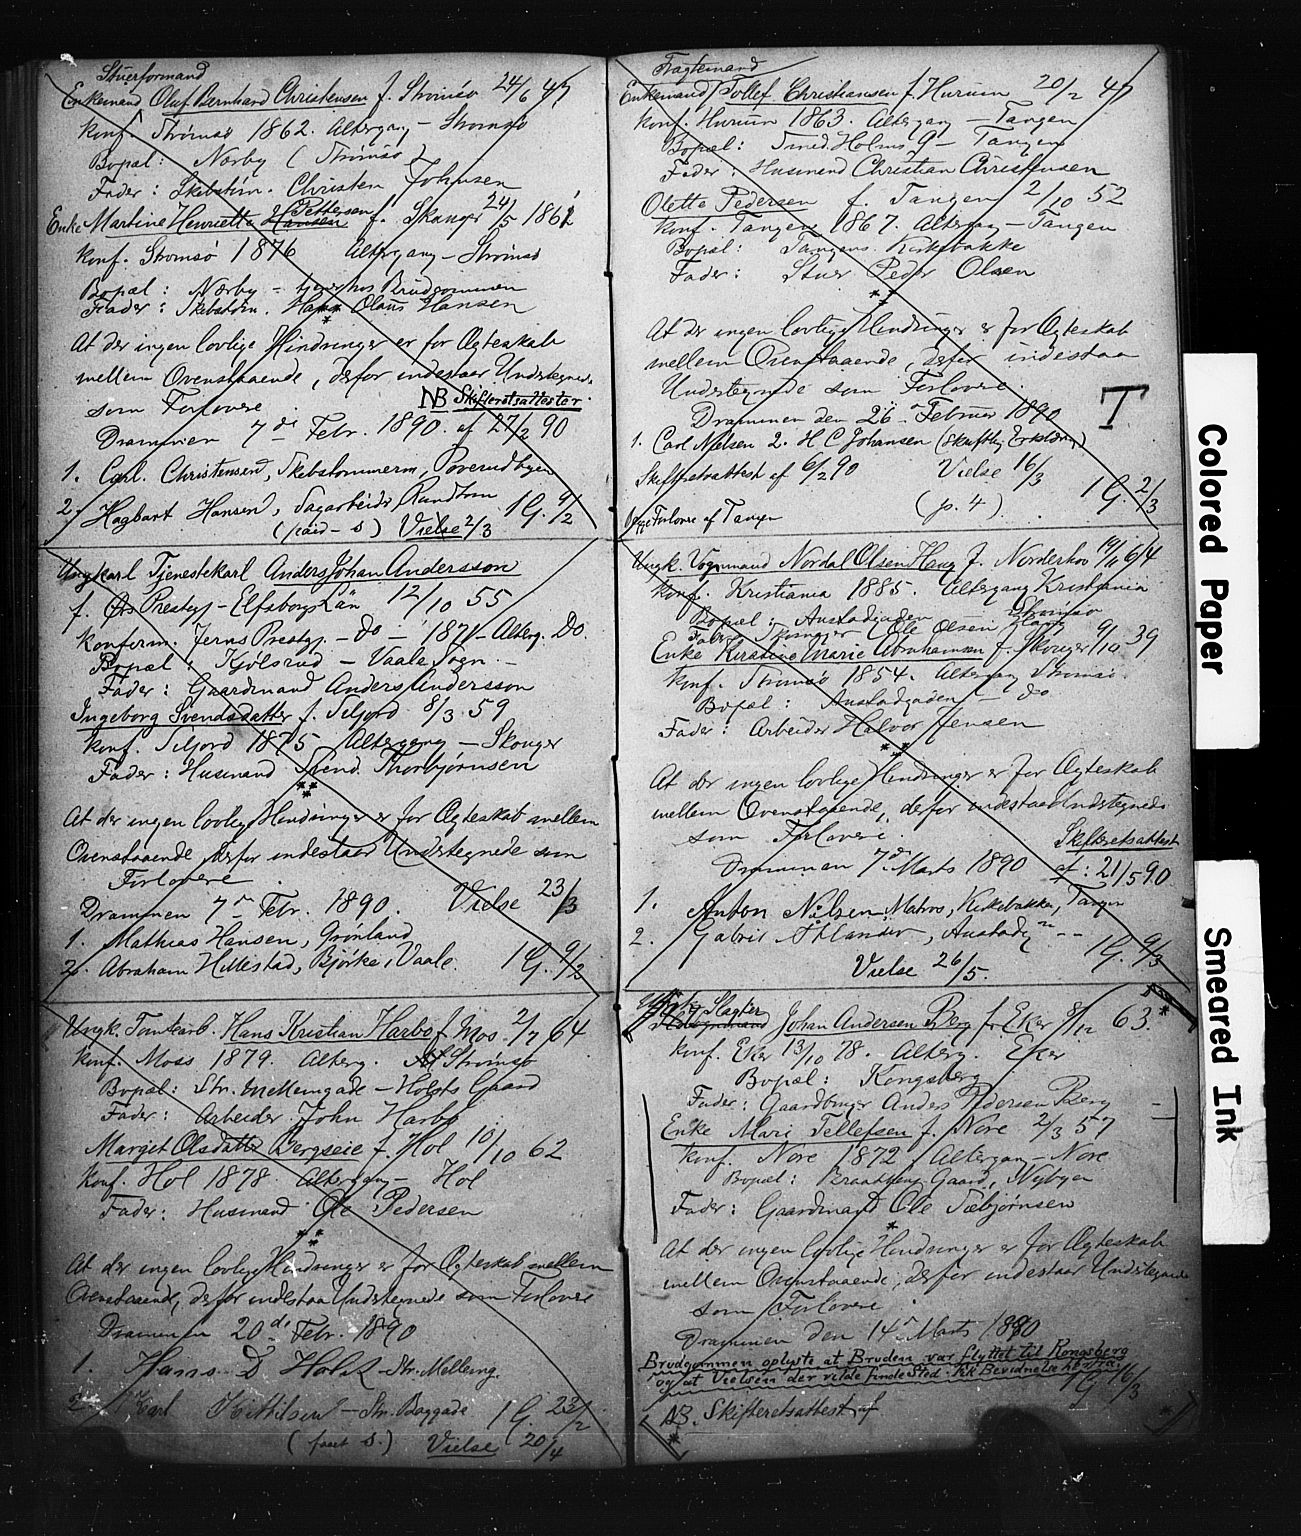 Stuerformand
Enkemand Oluf Bernhard Christensen f. Strømsø 24/6 47
Konf. Strømsø 1862. Altergang – Strømsø
Bopæl: Nørby (Strømsø)
Fader: Skibstøm. Christen Johnsen
Enke Martine Henriette Hansen Pettersen f. Skauger 24/5 1861
Konf. Strømsø 1876 Altergang – Strømsø
Bopæl: Nørby – hos Brudgommen
Fader: Skibstøm. Hans Olaus Hansen
At der ingen lovlige Hindringer er for Ægteskab
mellem Ovenstaaende, derfor indestaar Undertegnede
som Forlovere. NB Skifteretsattester
Drammen 7de Febr. 1890. af 27/2 90
1. Carl Christensen, Skibstømmerm,
2. Hagbart Hansen, Sagarbeider, Rundtom 1 G. 9/2
Vielse 2/3
Ungkarl Tjenestekarl Anders Johan Andersson
f. Ørs Prestegj – Elfsborgs Län 12/10 55
Konferm. Jerns Prestgj. – Do – 1871 – Alterg. Do.
Bopæl: Kjølsrud – Vaale Sogn. –
Fader: Gaardmand Anders Andersson
Ingeborg Svendsdatter f. Siljord 8/3 59
Konf. Siljord 1875 Altergang – Skouger
Fader: Husmand Svend Thorbjørnsen
At der ingen lovlig Hindringer er for Ægteskab mellem
Ovenstaaende derfor indestaar Undertegnede som
Forlovere
Drammen 7de Febr. 1890. Vielse 23/3
1. Mathias Hansen, Grønland
2. Abraham Hillestad, Bjørke i Vaale. 1 G. 9/2
Ungk. Tomtearb. Hans Kristian Harbo f. Mos. 2/7 64
Konf. Moss 1879. Alterg. Strømsø
Bopæl: Str. Mellemgade – Holsts Gaard
Fader: Arbeider John Harbo
Margit Olsdatter Bergseie f. Hol 10/10 62
Konf. Hol 1878. Altergang – Hol
Fader: Husmand Ole Pedersen
At der ingen lovlige Hindringer er for Ægteskab mellem
Ovenstaaende, derfor indestaa Undertegnede som Forlovere
Drammen 20de Febr. 1890
1. Hans D Holst – Str. Mellemg.
2. Karl Kittilsen – Str. Baggade 1 G. 23/2
Vielse 20/4
Fragtemand
Enkemand Tollef Christiansen f. Hurum 20/2 47
Konf. Hurum 1863. Altergang – Tangen
Bopæl: Smed. Holms G – Tangen
Fader: Husmand Christian Christensen
Olette Pedersen f. Tangen 2/10 52
Konf. Tangen 1867. Altergang – Tangen
Bopæl: Tangens Kirkebakke
Fader: Stuer Peder Olsen
At der ingen lovlige Hindringer er for Ægteskab
mellem Ovenstaaende, derfor indestaa
Undertegnede som Forlovere. T.
Drammen den 26de Februar 1890
1. Carl Nielsen 2. H C Johansen (Skriftlig Erklæring)
Skifteretsattest af 6/2 90 Vielse 16/3
(p. 4) 1 G. 2/3
Begge Forlovere af Tangen
Ungk. Vognmand Nordal Olsen Haug f. Norderhov 19/11 64
Konf. Kristiania 1885. Altergang Kristiania
Bopæl: Austadgaden Strømsø
Fader: Ole Olsen Haug
Enke Kirstine Marie Abrahamsen f. Skouger 9/10 39
Konf. Strømsø 1854. Altergang Strømsø.
Bopæl: Austadgaden – do
Fader: Arbeider Halvor Jensen
At der ingen lovlige Hindringer er for Ægteskab
mellem Ovenstaaende, derfor indestaa Undertegnede
som Forlovere. Skifteretsattest
Drammen 7de Marts 1890 af: 21/5 90
1. Anton Nilsen Matros, Kirkebakke, Tangen
2. Gabriel Aklander, Austadg 1 G. 9/3
Vielse 26/5.
Ungk. Slagter
Johan Andersen Berg f. Eker 8/12 63.
Konf. Eker 13/10 78. Alterg. Eker
Bopæl: Kongsberg
Fader: Gaardbruger Anders Pedersen Berg
Enke Mari Tellefsen f. Nore 2/3 57
Konf. Nore 1872 Altergang – Nore
Bopæl: Gaard, Nybyen
Fader: Gaardmand Ole Torbjørnsen
At der ingen lovlige Hindringer er for Ægteskab
mellem Ovenstaaende, derfor indestaar Undertegnede
som Forlovere
Drammen den 14de Marts 1890
Brudgommen oplyste at Bruden var flyttet til Kongsberg
og at Vielsen der vilde finde Sted. KK Bevidnelse hb fra.
1 G. 16/3
NB. Skifteretsattest af
Colored Paper
Smeared Ink